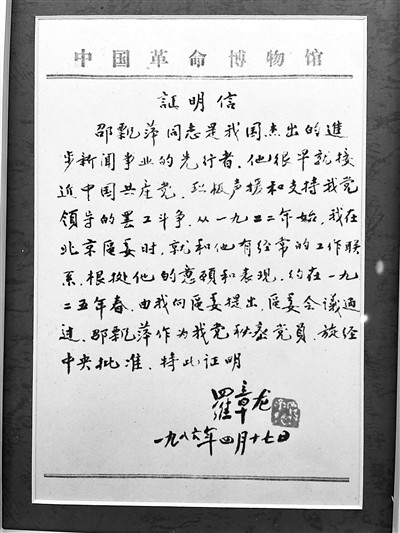 中国革命博物馆
証明信
邵飘萍同志是我国杰出的進
步新闻事业的先行者．他很早就接
近中国共产党．积极声援和支持我党
领导的罢工斗争．从一九二二年始，我在
北京區委时，就和他有经常的工作联
系．根据他的意願和表现，约在一九
二五年春．由我向區委提出．區委会议通
过．邵飘萍作为我党秘密党員．旋经
中央批准．特此证明
羅章龙
一九八六年四月十七日